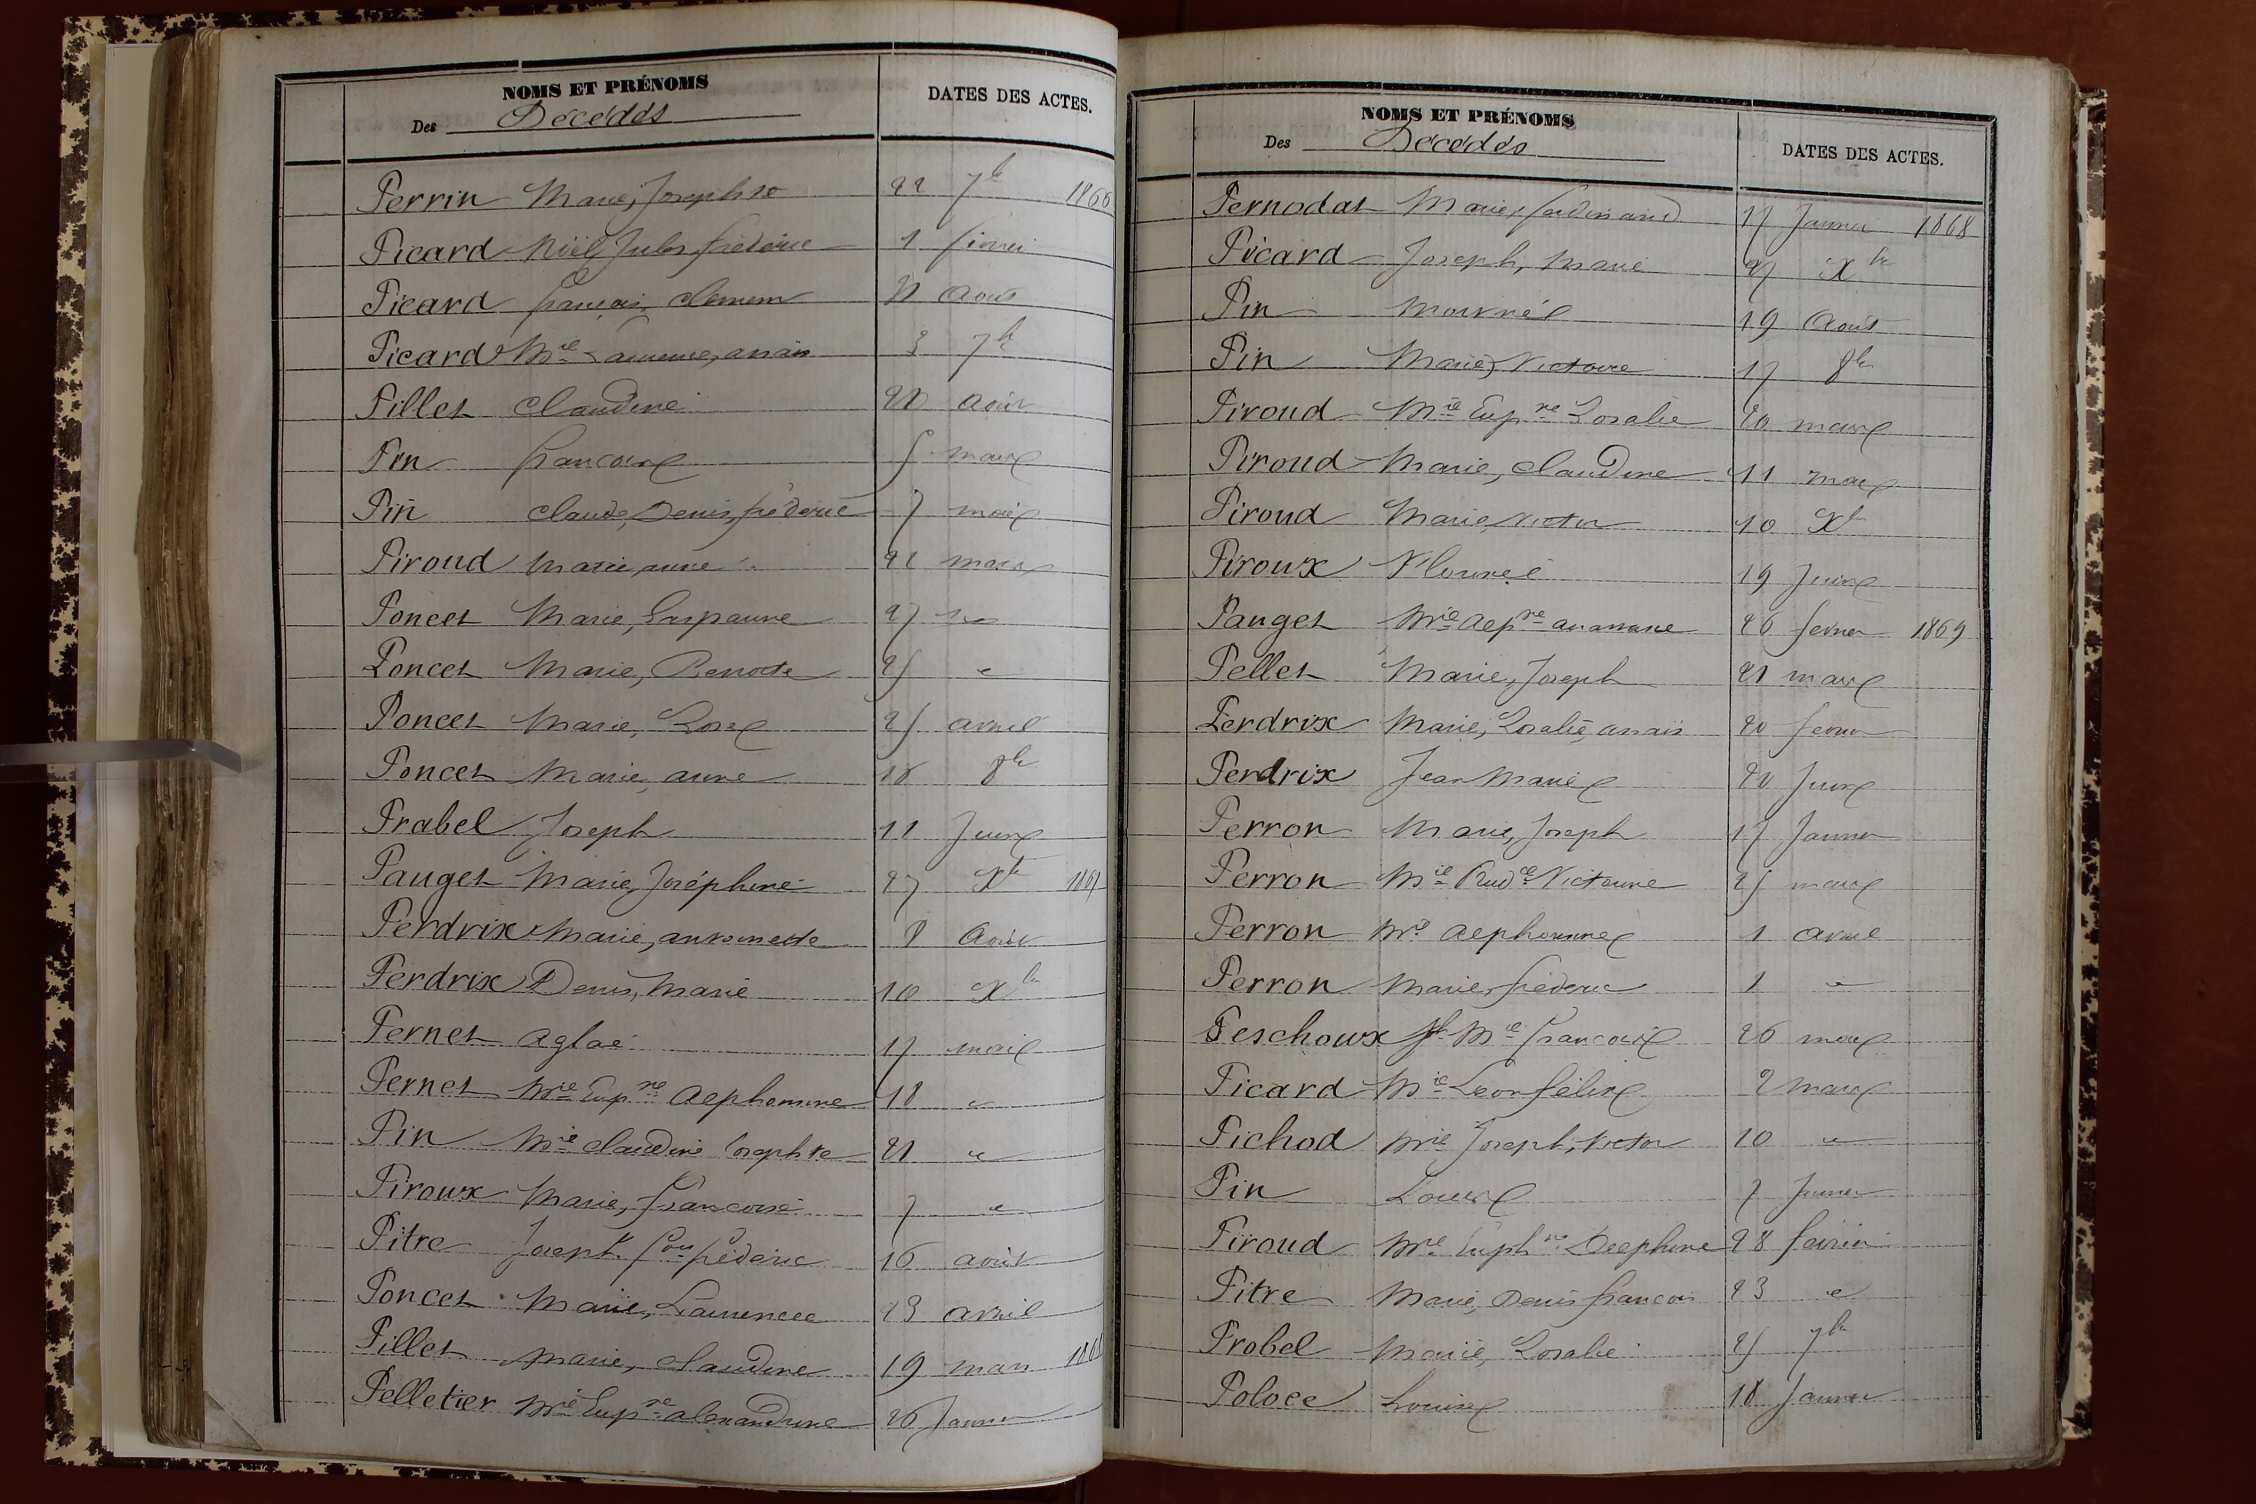 NOMS ET PRÉNOMS
Des Décédés
DATES DES ACTES.
Perrin Marie, Josephte 22 7bre 1866
Picard Noël Jules frédéric 1 février
Picard françois, clément 21 Août
Picard Mie Laurence, anaïs 3 7bre
Pillet Claudine août
Pin francoise 5 mars
Pin Claude, Denis, frédéric 7 mars
Piroud Marie, anne 21 mars
Poncet Marie, 27
Poncet Marie, Benoite 25 "
Poncet Marie, Rose 25 avril
Poncet Marie, anne 16 8bre
Prabel Joseph 11 Juin
Pauget Marie, Joséphine 27 Xbre 1867
Perdrix Marie, antoinette 8 Août
Perdrix Denis, Marie 10 Xbre
Pernet aglaé 17 mai
Pernet Mie Eupnie alephonsine 18 "
Pin Mie claudine Josephte 21 "
Piroux Marie, francoise 7 "
Pitre Joseph fois frédéric 16 août
Poncet Marie, Laurence 23 avril
Pillet Marie, claudine 19 mars 1868
Pelletier Mie Eupnie alexandrine 26 Janvier
NOMS ET PRÉNOMS
Des Décédés
DATES DES ACTES.
Pernodat Marie, ferdinand 17 Janvier 1868
Picard Joseph, Marie 27 Xbre
Pin Mort né 19 Août
Pin Marie, Victoire 17 8bre
Piroud Mie Eupnie Rosalie 20 mars
Piroud Marie, Claudine 11 mars
Piroud Marie, Victor 10 Xbre
Piroux 19 Juin
Pauget Mie 26 fevrier 1869
Pellet Marie, Joseph 21 mars
Perdrix Marie, Rosalie, anaïs 20 fevrier
Perdrix Jean Marie 20 Juin
Perron Marie, Joseph 17 Janvier
Perron Mie Rudce Victorine 25 mars
Perron Mie alephonsine 1 avril
Perron Marie, frédéric 1 "
Peschoux Jh Mie francois 26 mars
Picard Mie Léon félix 2 mars
Pichod Mie Joseph, Victor 20 "
Pin Louise 7 Janvier
Piroud Mie Euphnie Delephine 28 février
Pitre Marie, Denis francois 23 "
Probel Marie, Rosalie 25 7bre
Poloce Louise 18 Janvier